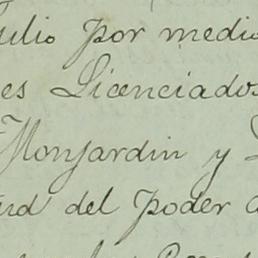 por medio
es Licenciados
Monjardin y
del poder